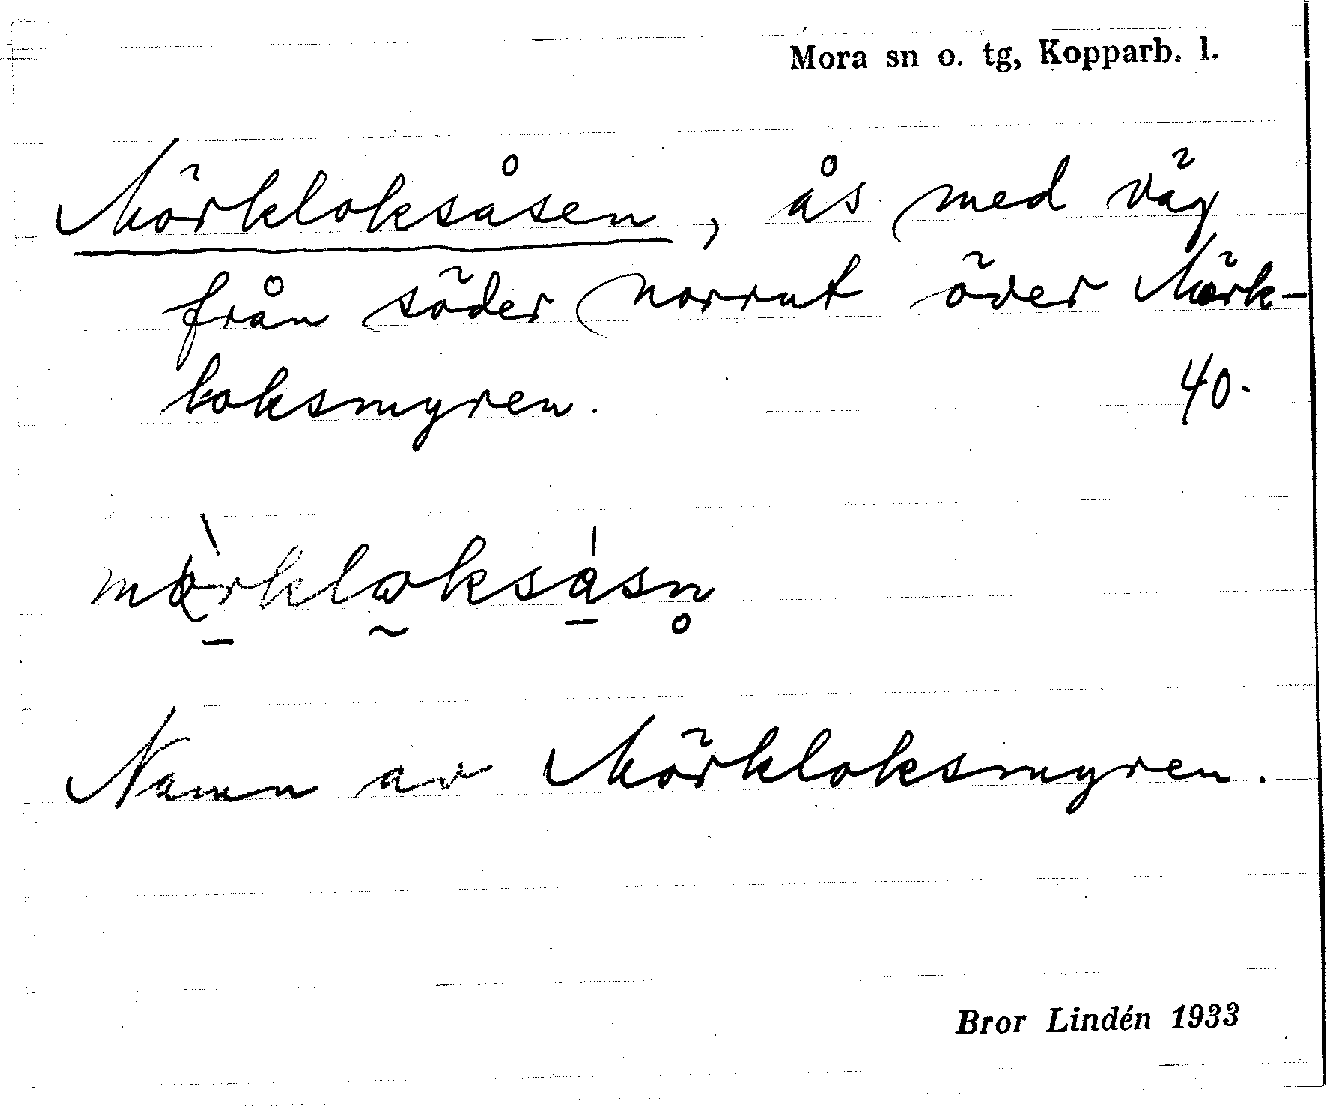 Mora sn o. tg, Kopparb. l.
Mörkloksåsen, ås med väg
från söder norrut över Mörk-
loksmyren. 40.
mörkloksåsn
Namn av Mörkloksmyren.
Bror Lindén 1933